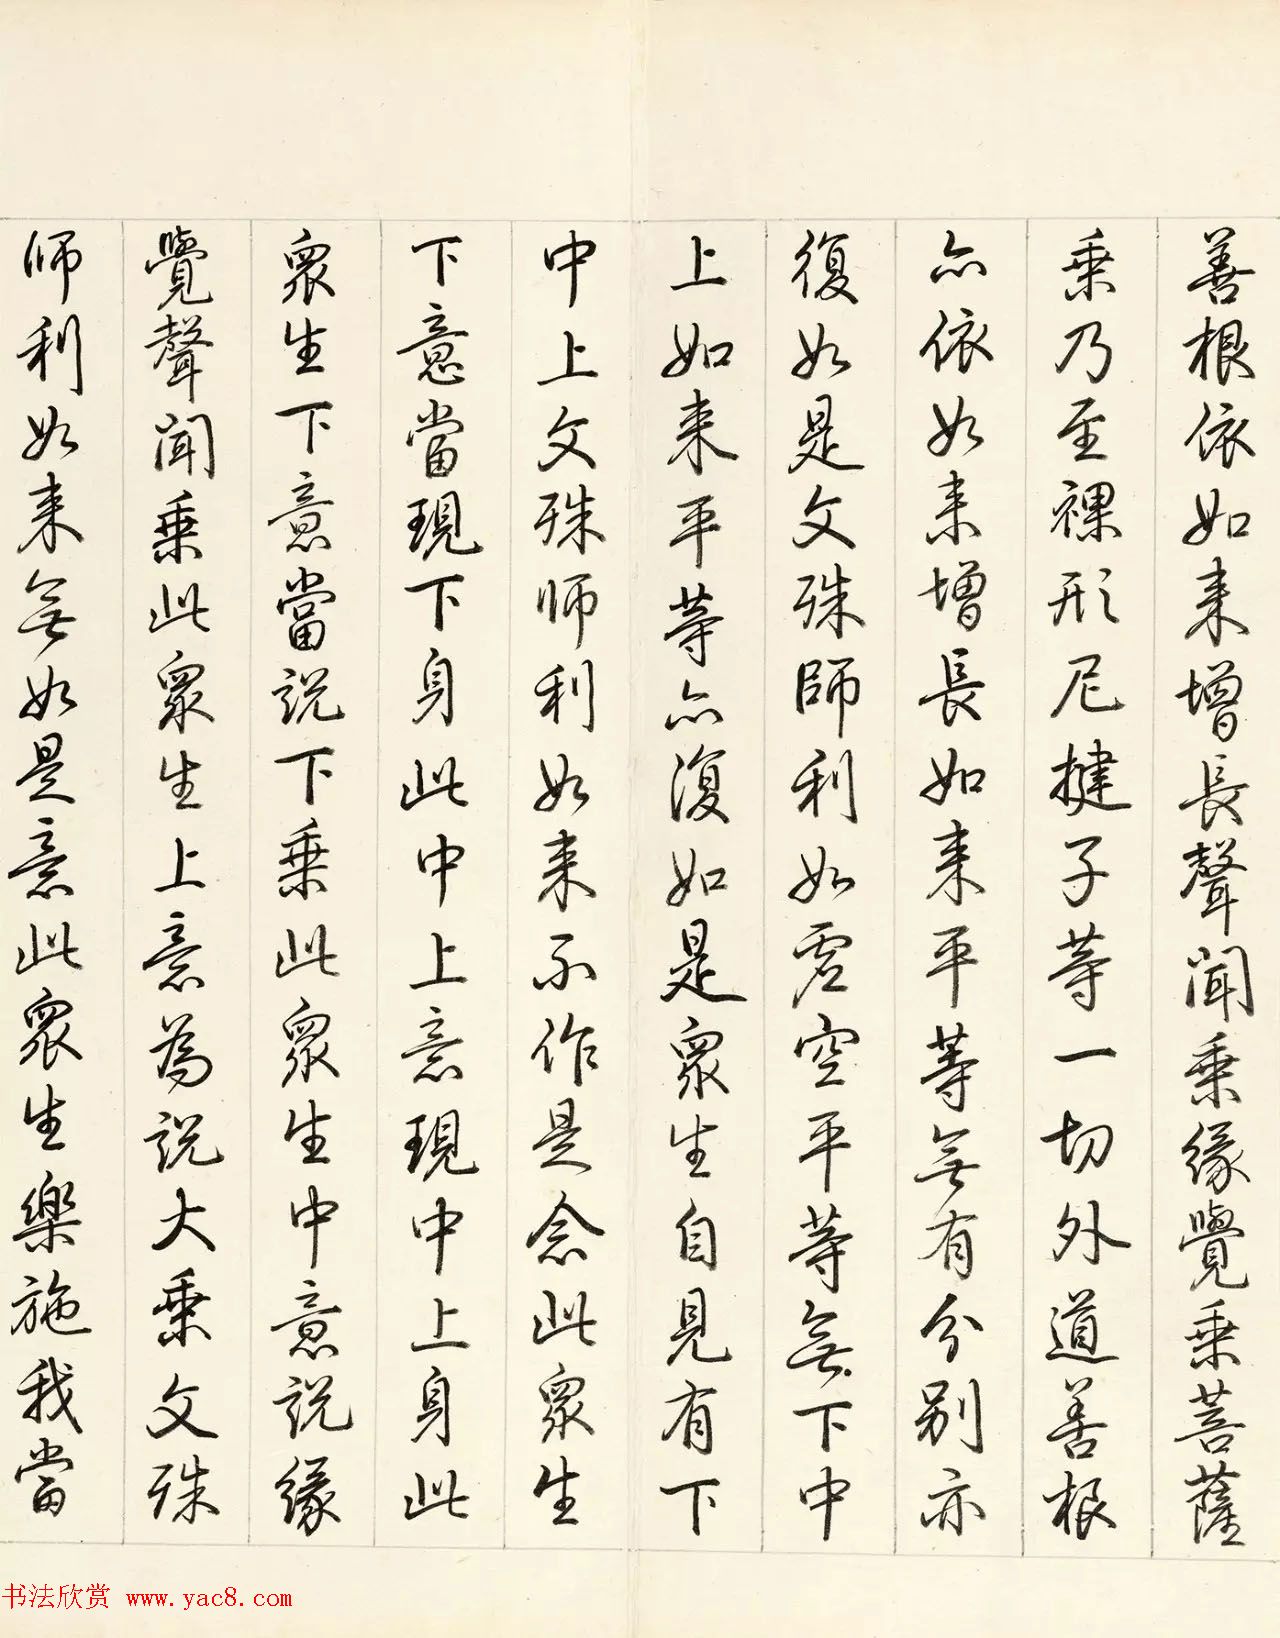 善根依如来增長聲聞乗緣覺乗菩薩
乗乃至裸形尼揵子等一切外道善根
亦依如来增長如来平等無有分别亦
復如是文殊師利如虛空平等無下中
上如来平等亦復如是衆生自見有下
中上文殊师利如来不作是念此衆生
下意當現下身此中上意現中上身此
衆生下意當説下乗此衆生中意説緣
覺聲聞乗此衆生上意為説大乗文殊
师利如来無如是意此衆生樂施我當
书法欣赏 www.yac8.com